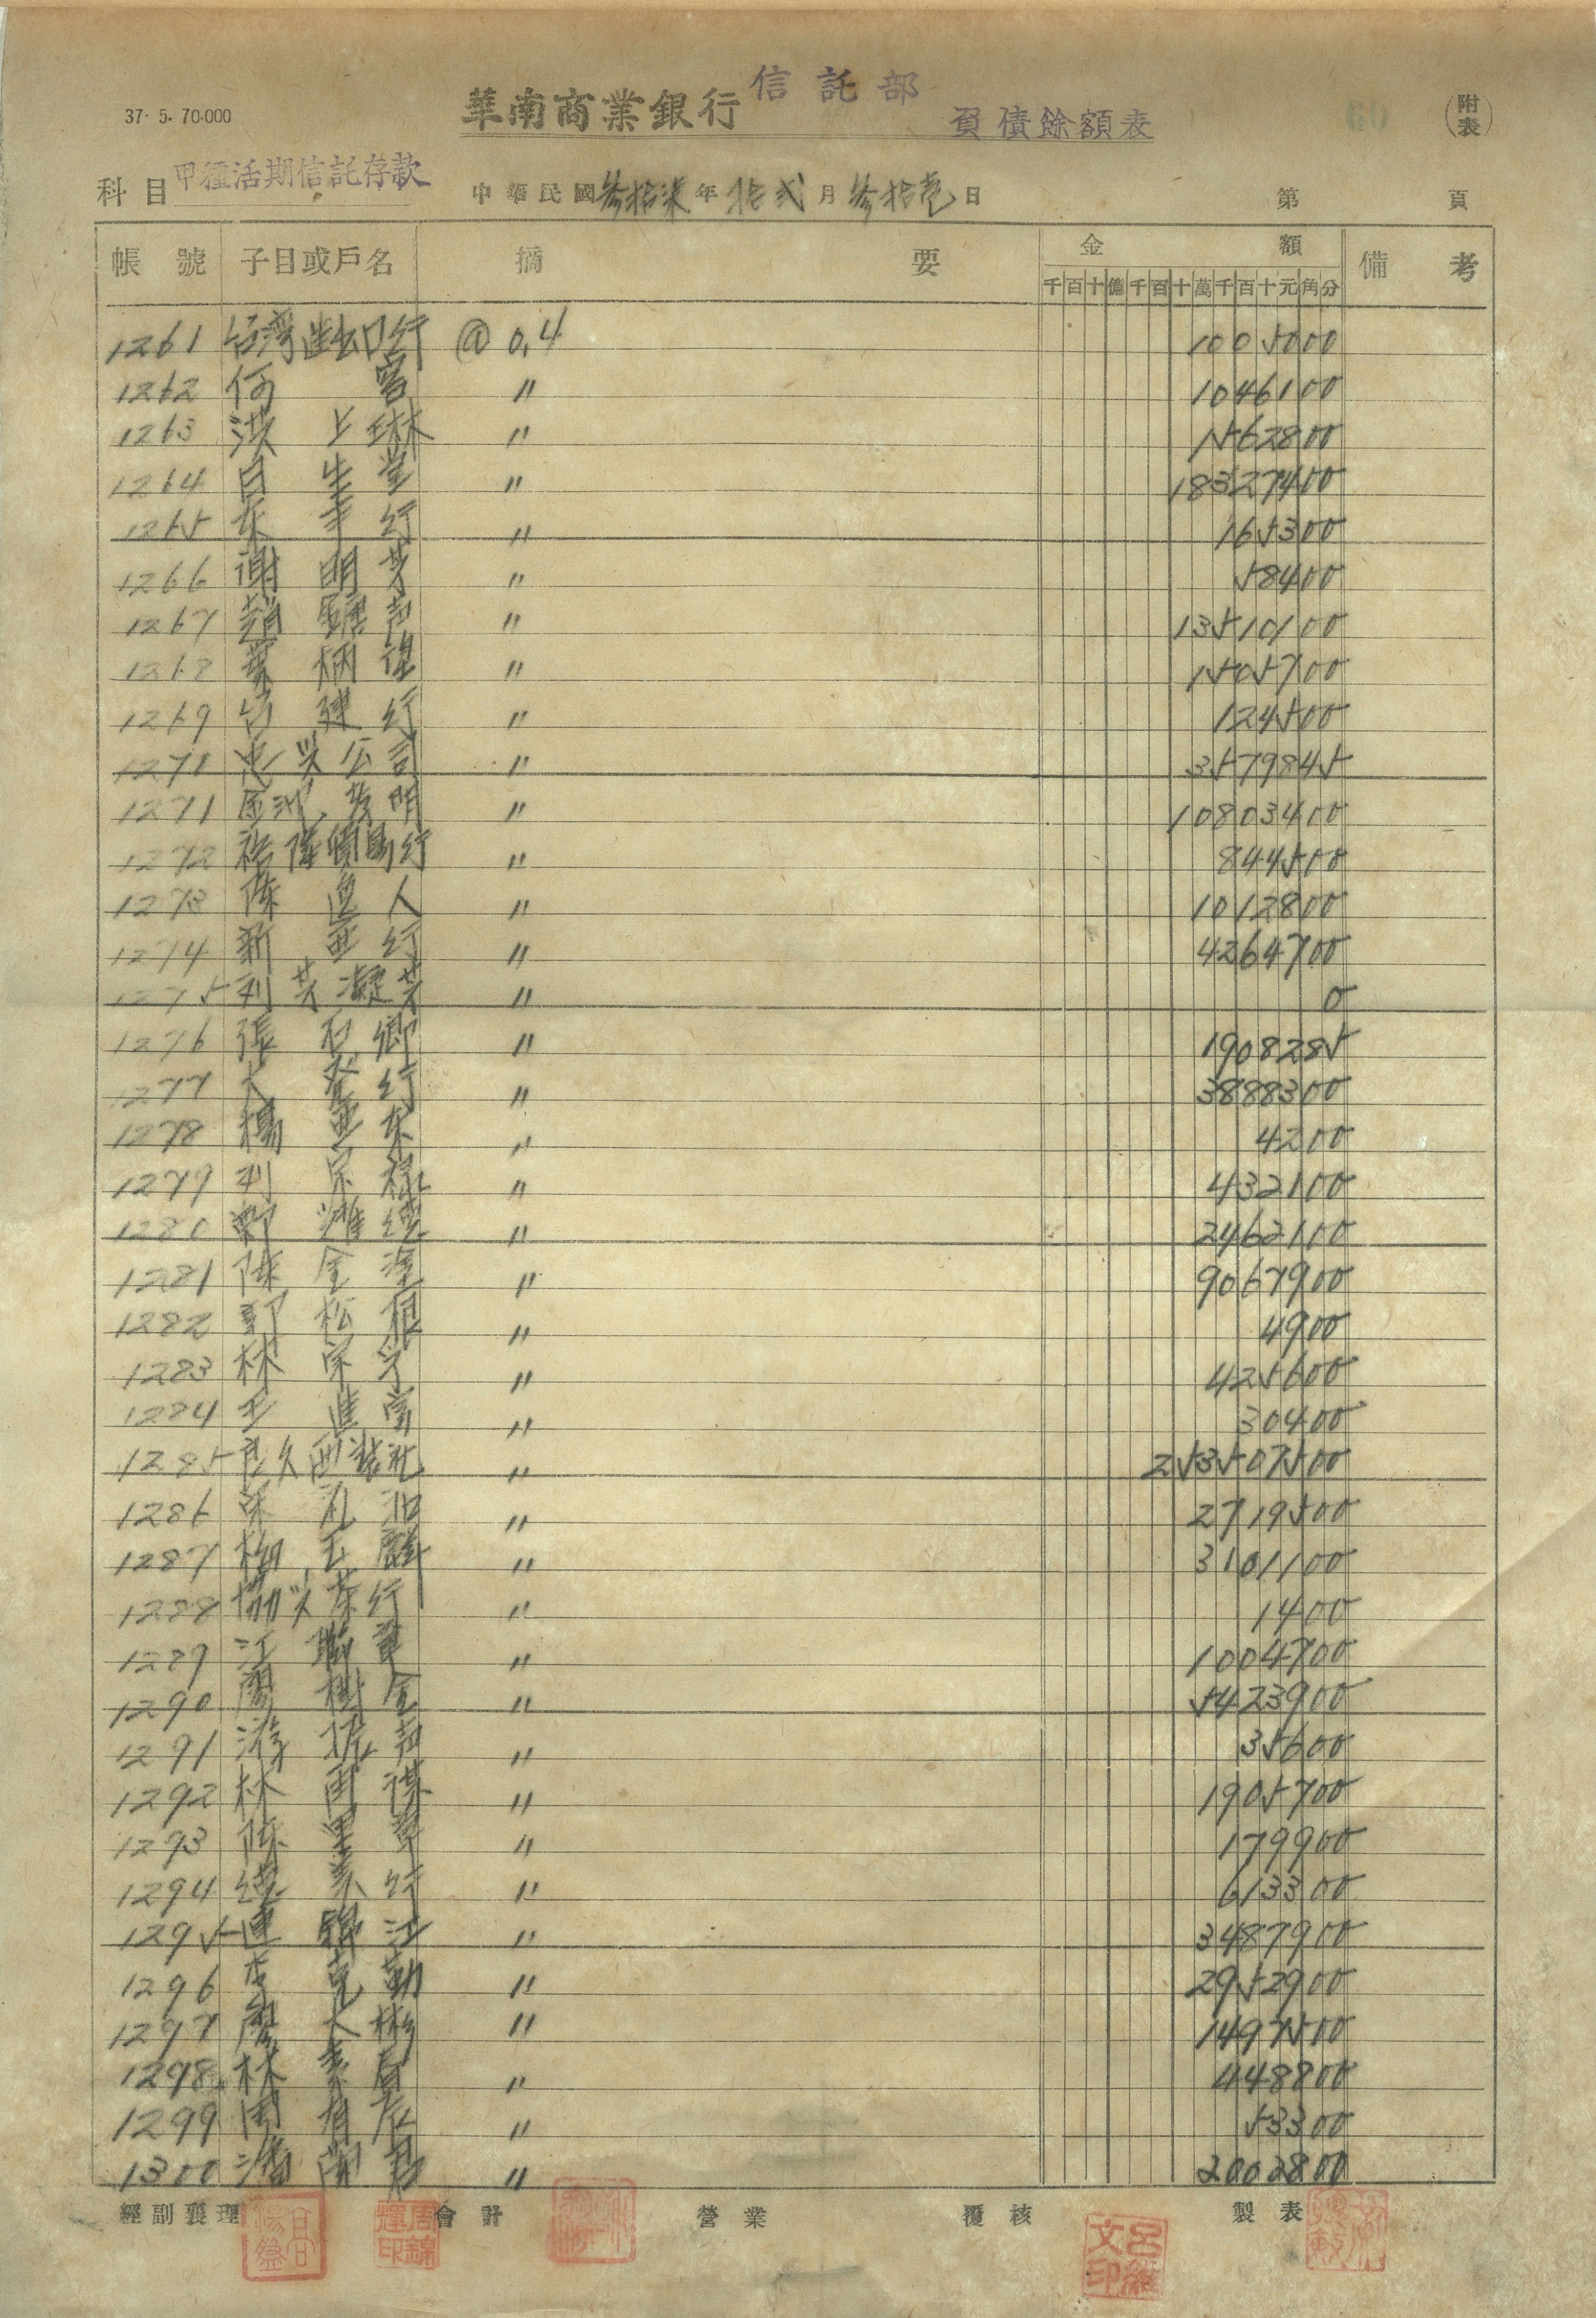 37. 5. 70.000
華南商業銀行 信託部
負債餘額表
(附表)
科目 甲種活期信託存款 中華民國參拾柒年拾弍月參拾壱日 第 頁
帳號 子目或戶名 摘要 金額 備考
千百十億千百十萬千百十元角分
1261 台湾進出口行 @ 0,4 1005000
1262 何 〃 1046100
1263 洪上琳 〃 1562800
1264 自生堂 〃 18327400
1265 東丰行 〃 165300
1266 謝明芳 〃 58400
1267 趙 〃 13510100
1268 葉炳 〃 1505700
1269 台建行 〃 124500
1270 忠兴公司 〃 3579845
1271 金 明 〃 10803400
1272 裕隆 行 〃 844500
1273 陳 人 〃 1012800
1274 新亜行 〃 4264700
1275 利芳凝芳 〃 0
1276 張石卿 〃 1908285
1277 大 行 〃 3888300
1278 楊亜東 〃 4200
1279 利宗禄 〃 432100
1280 鄭 德 〃 2462100
1281 陳金塗 〃 9067900
1282 郭松根 〃 4900
1283 林宗 〃 425600
1284 王進富 〃 30400
1285 良久西装社 〃 253507500
1286 〃 2719500
1287 柳玉麟 〃 3101100
1288 協兴茶行 〃 1400
1289 江 〃 1004700
1290 廖樹金 〃 5423900
1291 游 〃 35600
1292 林再謀 〃 1905700
1293 陳 〃 179900
1294 德美行 〃 613300
1295 連錦江 〃 3487900
1296 李克勤 〃 2952900
1297 廖大彬 〃 1497500
1298 林素眉 〃 448800
1299 周有 〃 53300
1300 潘蘭 〃 2002800
經副襄理 會計 營業 覆核 製表
周錦輝印
呂 文印